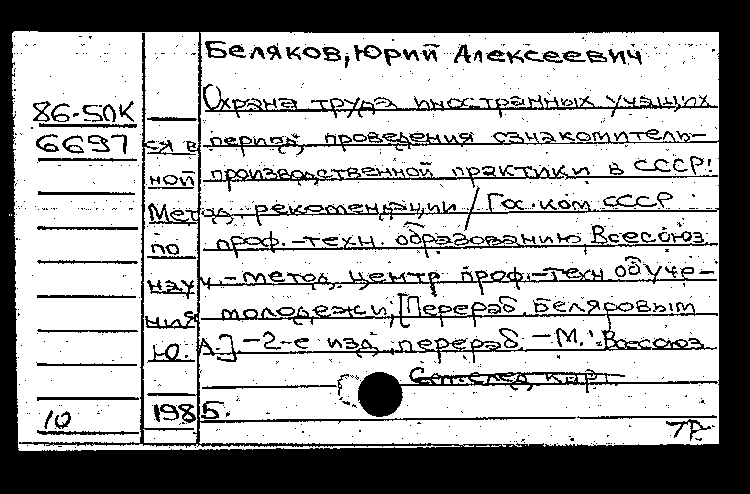 Беляков, Юрий Алексеевич
86-50К Охрана труда иностранных учащих
6697 ся в период проведения ознакомитель-
ной производственной практики в СССР:
Метод. рекомендации / Гос. ком СССР
по проф.-техн. образованию, Всесоюз.
науч.-метод. центр проф.-техн обуче-
ния молодежи; [Перераб. Беляровым
Ю. А.] -2-е изд., перераб. -М.: Всесоюз.
См. след. карт.
10 1985.